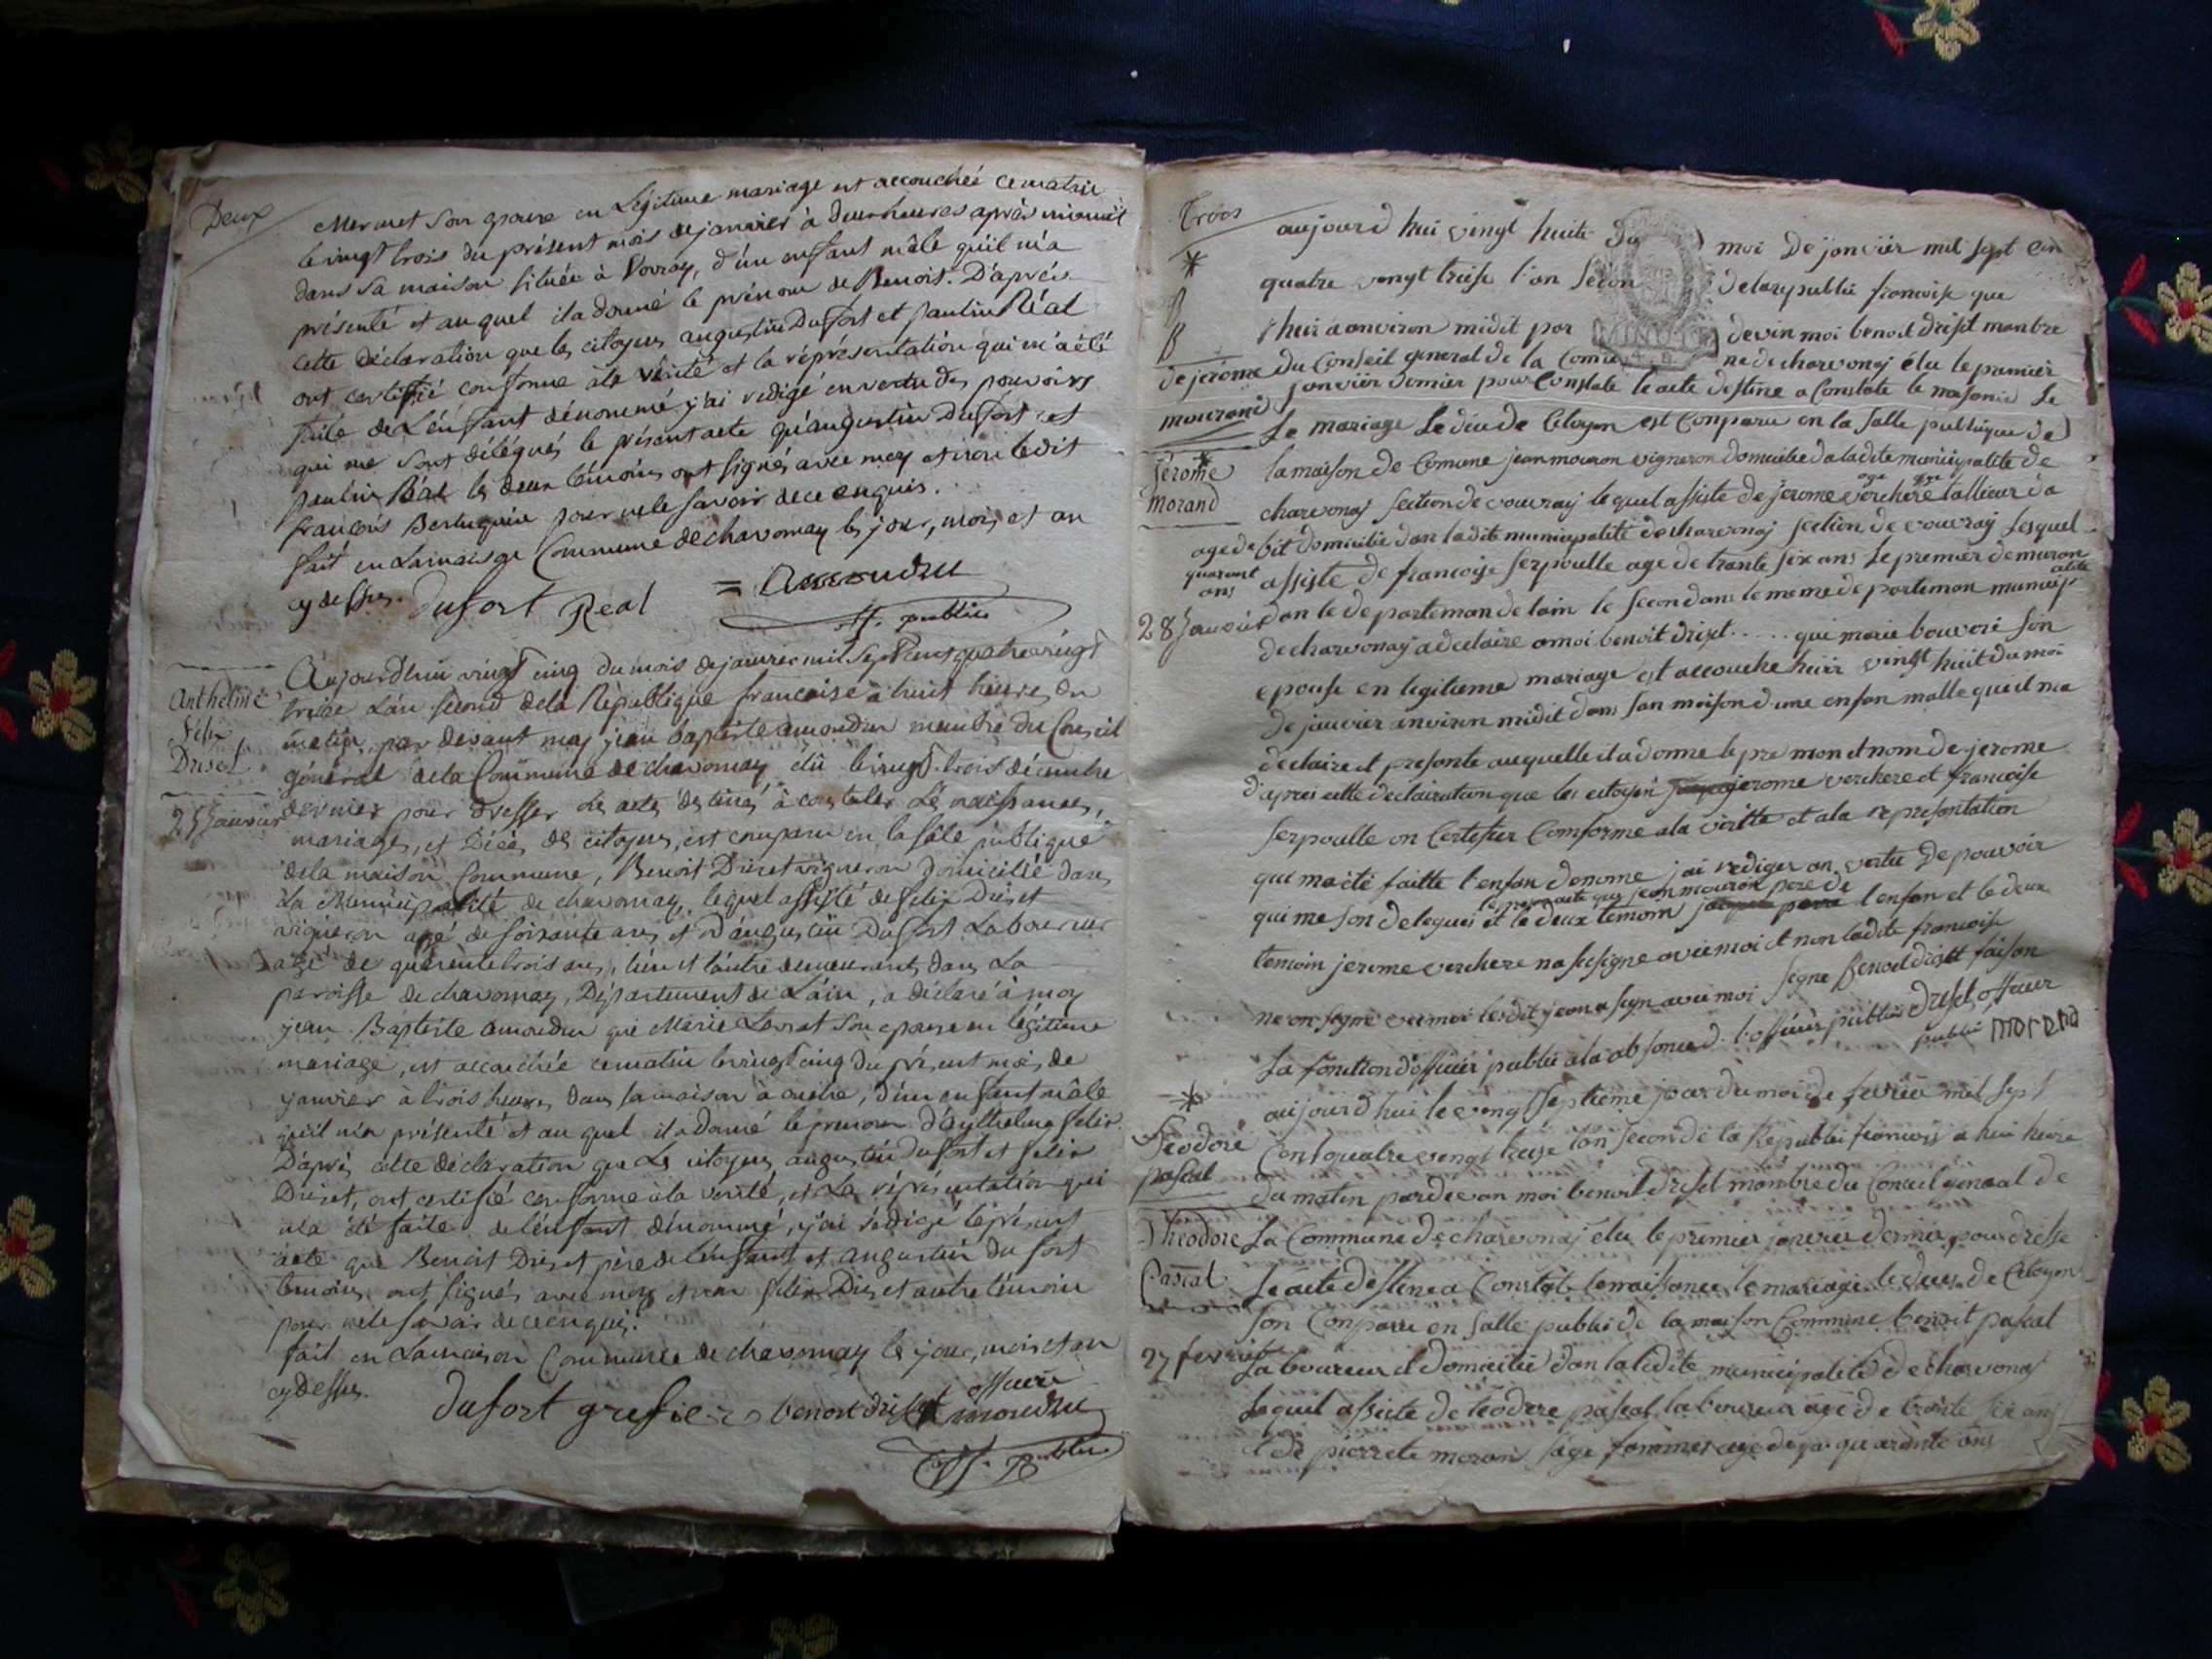 Deux
Mermet son epouse en Légitime mariage est accouchée ce matin
le vingt trois du présent mois de janvier à deux heures après minuit
dans sa maison située à Vovray, d'un enfant mâle qu'il m'a
présenté et au quel il a donné le prénom de Benoit. D'après
cette déclaration que les citoyens augustin Dufort et paulin Réal
ont certifié conforme à la vérité et la répresentation qui m'a été
faite de L'énfant dénommé, j'ai redigé en vertu des pouvoirs
qui me sont délégués le présent acte qu'augustin Dufort et
paulin Réal les deux témoins ont signés avec moy et non ledit
françois pour ne le savoir de ce enquis.
fait en La maison Commune de chavornay les jour, mois et an
cy dessus. Dufort Real = Amoudru
off. public
Anthelme
Felix
Driset
25 Janvier
Aujourdhui vingt cinq du mois de janvier mil sept cent quatre vingt
treize L'an second de la République française à huit heures du
matin, par devant moy jean baptiste amoudru membre du Conseil
général de la Commune de chavornay élu le vingt trois décembre
dernier pour dresser les actes destinés à constater Les naissances,
mariages, et Décès des citoyens, est comparu en la sale publique
de la maison Commune, Benoit Driset vigneron Domicilié dans
La Municipalité de chavornay, lequel assisté de felix Driset
vigneron agé de soixante ans, et d'augustin Dufort Laboureur
agé de quarente trois ans, l'un et l'autre demeurants dans La
paroisse de chavornay, Département de L'ain, a déclaré à moy
jean Baptiste amoudru que Marie Levrat son epouse en légitime
mariage, est accouchée ce matin le vingt cinq du présent mois de
janvier à trois heures dans sa maison à , d'un enfant mâle
qu'il m'a présenté et au quel il a donné le prenom d'anthelme felix.
D'après cette déclaration que Les citoyens augustin Dufort et felix
Driset, ont certifié conforme à la verité, et La réprésentation qui
m'a été faite de l'enfant dénommé, j'ai rédigé le présent
acte que Benoit Driset père de l'enfant et augustin Dufort
témoins ont signés avec moy et non felix Driset autre témoin
pour ne le savoir de ce enquis.
fait en La maison Commune de chavornay les jour, mois et an
cy dessus.
dufort grefier benoit driset officier amoudru
off. public
Trois
*
B
B
de jerome
mourand
*
jérome
Morand
agé de
quarant
ans
28 Janvier
aujourd hui vingt huite du moi De janvier mil sept cen
quatre vengt treise l'an secon de la republic francoise que
l'huir a anviron midit par devan moi benoit driset manbre
du Conseil general de la Comu ne de charvonaj élu le premier
janvier dernier pour Constate le acte destine a Constate le nasance Le
Le mariage Le diu de Citoyen est Conparu en la salle publique de
la maison de Comune jean mouron vigneron domicilie da la dite municipalite de
charvonaj section de vouvraj lequel assiste de jerome verchere tallieur da
bit domicilie dan la dite municipalite de charvonaj section de vouvraj Lesquel
assiste de francoise serpoulle age de trante six ans Le premier demuran
dan le departeman de lain le secon dans le meme departeman municip
alite
de charvonaj a declaire a moi benoit driset ..... que marie bouvere son
epouse en legitieme mariage est accouche huir vingt huit du moi
de janvier anviron midit dans san maison d'une enfan malle queil ma
declaire et presante auquelle il a donne le pre mon et nom de jerome
d'apres cette declairation que les citoyen jerome verchere et francoise
serpoulle on Certifier Comforme a la viritte et a la represantation
qui ma été faitte l'enfan denome j'ai rediger an vertu De pouvoir
le present acte que jean mouron pere de
qui me son delegues et le deux temoin l'enfan et le deux
temoin jerome verchere na sesigne avec moi et non ladite francoise
ne on signe avec moi ledit jean a sign avec moi signe Benoit driset faison
La fonction d'officier public a la absence d. l'officier public driset officier
public morand
*
Teodore
pascal
Theodore
Pascal
27 fevrier
aujourd hui le vengt septieme jour du moi de fevrier mil sept
Cent quatre vengt treise l'an second de la Republic francois a huit heure
du matin pardevan moi benoit driset manbre du Conceil general de
La Commune de charvonaj elu le premier janvier dernier pour dresse
Le acte destine a Constate le naissance le mariage le deces de Citoyen
son Conparu en salle public de la maison Commune benoit pascal
laboureur et domicilie dan la dite municipalite de charvonaj
Lequel assiste de teodore pascal laboureur agé de trante six ans
et de pierrete moron sage fammes age de quarante ans